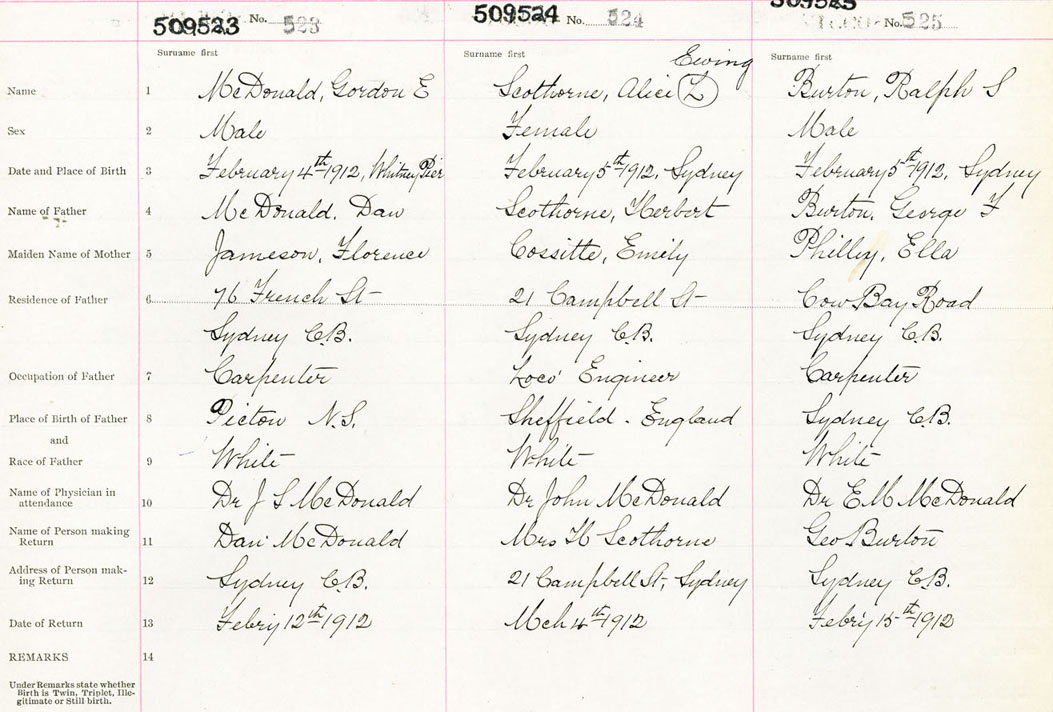 509523 No. 523 509524 No. 524 509525 No. 525
Surname first Surname first Surname first
Ewing
Name 1 McDonald, Gordon E Scothorne, Alice Z Burton, Ralph S
Sex 2 Male Female Male
Date and Place of Birth 3 February 4th 1912, Whitney Pier February 5th 1912, Sydney February 5th 1912, Sydney
Name of Father 4 McDonald, Dan Scothorne, Herbert Burton, George F
Maiden Name of Mother 5 Jameson, Florence Cossitte, Emily Philley, Ella
Residence of Father 6 76 French St 21 Campbell St Cow Bay Road
Sydney C.B. Sydney C.B. Sydney C.B.
Occupation of Father 7 Carpenter Loco' Engineer Carpenter
Place of Birth of Father 8 Picton N.S. Sheffield - England Sydney C.B.
and
Race of Father 9 White White White
Name of Physician in
attendance 10 Dr J S McDonald Dr John McDonald Dr E M McDonald
Name of Person making
Return 11 Dan McDonald Mrs H Scothorne Geo Burton
Address of Person mak-
ing Return 12 Sydney C.B. 21 Campbell St, Sydney Sydney C.B.
Date of Return 13 Febry 12th 1912 Mch 4th 1912 Febry 15th 1912
REMARKS 14
Under Remarks state whether
Birth is Twin, Triplet, Ille-
gitimate or Still birth.